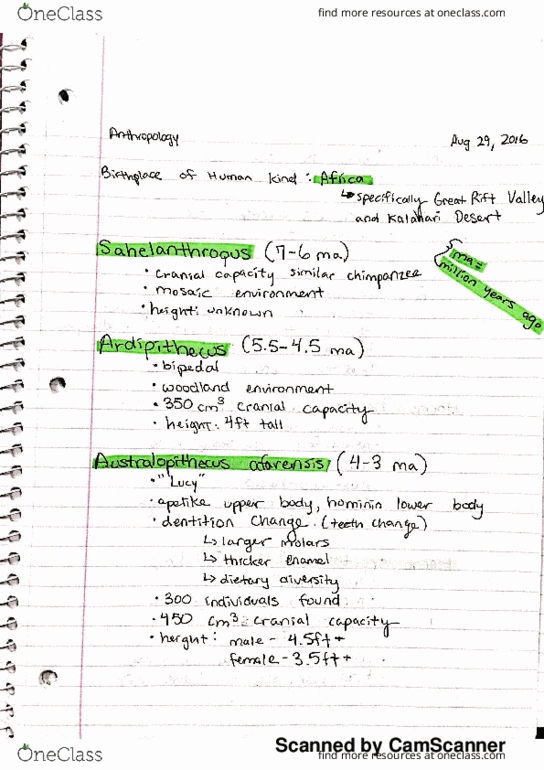 OneClass
find more resources at oneclass.com
Anthropology
Aug 29, 2016
Birthplace of Human kind : Africa
↳ specifically Great Rift Valley
and Kalahari Desert
Sahelanthropus (7-6 ma)
ma =
million years ago
• cranial capacity similar chimpanzee
• mosaic environment
• height: unknown
Ardipithecus (5.5-4.5 ma)
• bipedal
• woodland environment
• 350 cm³ cranial capacity
• height: 4ft tall
Australopithecus afarensis (4-3 ma)
• "Lucy"
• apelike upper body, hominin lower body
• dentition change (teeth change)
↳ larger molars
↳ thicker enamel
↳ dietary diversity
• 300 individuals found
• 450 cm³ cranial capacity
• height: male - 4.5ft+
female - 3.5ft+
Scanned by CamScanner
OneClass
find more resources at oneclass.com